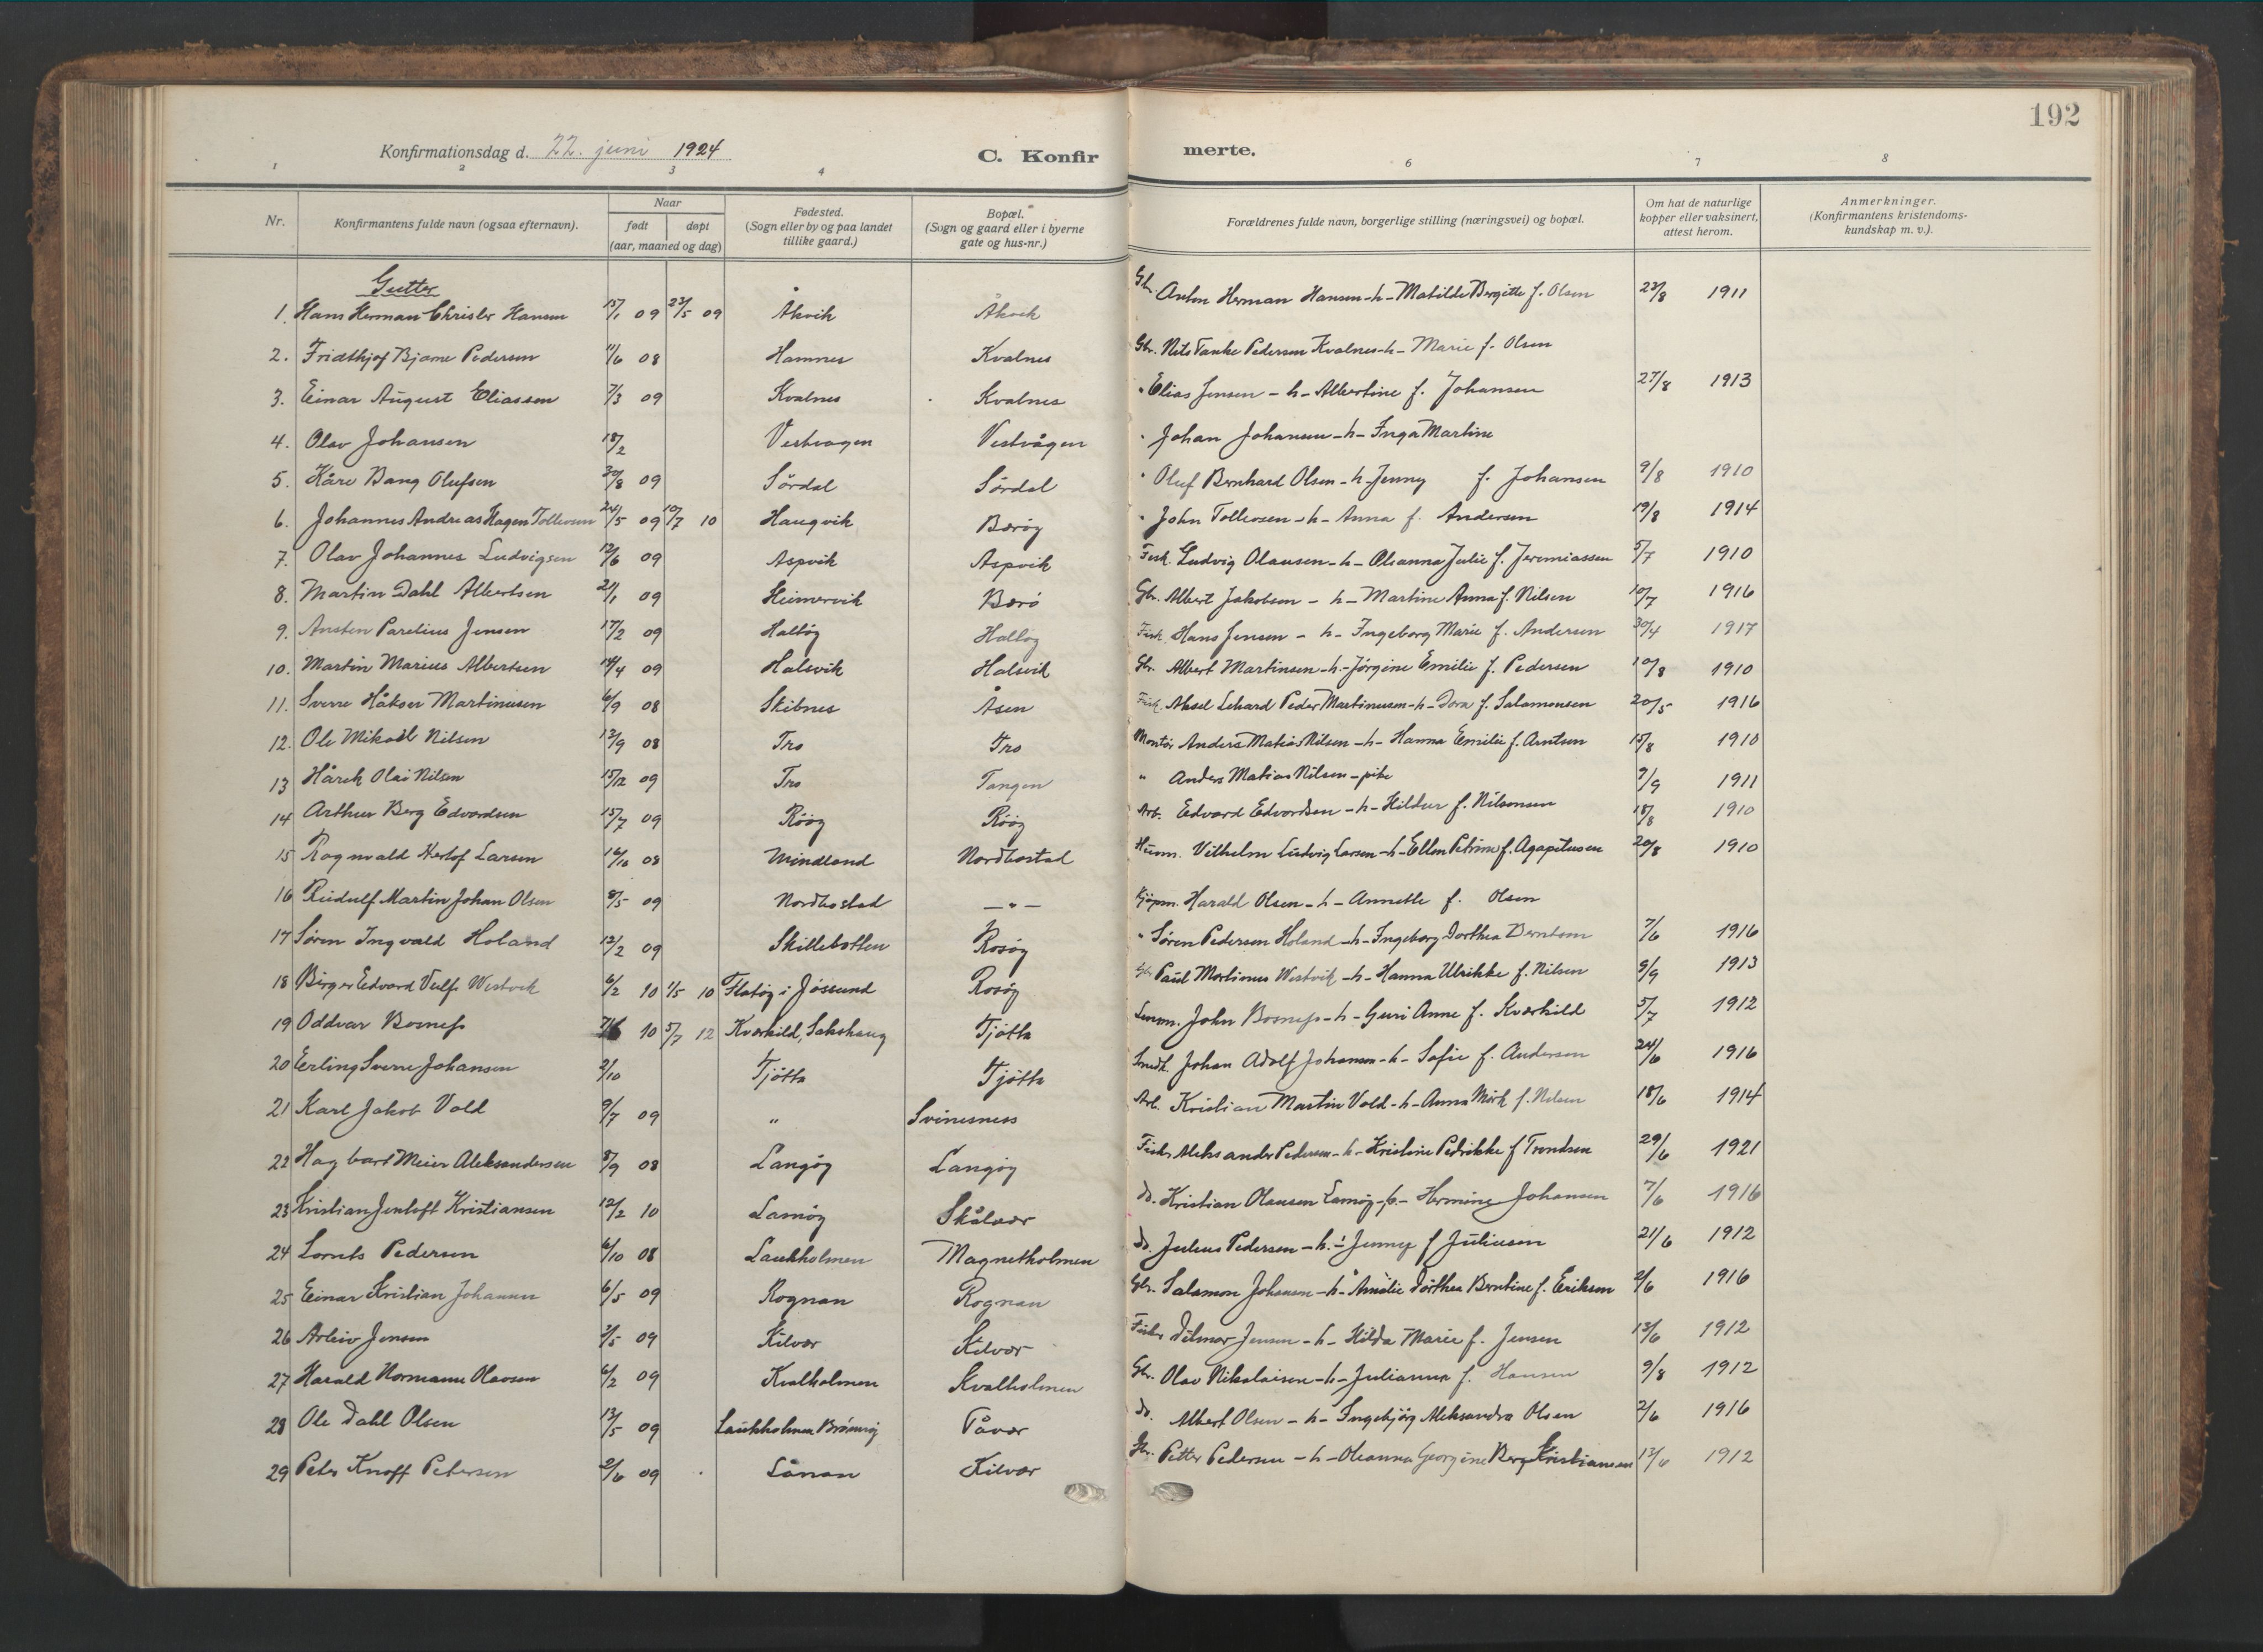 192
Konfirmationsdag d. 22. juni 1924 C. Konfirmerte.
1 2 3 4 6 7 8
Nr. Konfirmantens fulde navn (ogsaa efternavn). Naar født døpt (aar, maaned og dag) Fødested. (Sogn eller by og paa landet tillike gaard.) Bopæl. (Sogn og gaard eller i byerne gate og hus-nr.) Forældrenes fulde navn, borgerlige stilling (næringsvei) og bopæl. Om hat de naturlige kopper eller vaksinert, attest herom. Anmerkninger. (Konfirmantens kristendoms-kundskap m. v.).
Gutter
1. Hans Herman Hansen 15/1 09 23/5 09 Åkvik Åkvik Gbr. Anton Herman Hansen -h- Matilde Bergitte f. Olsen 23/8 1911
2. Fridthjof Bjarne Pedersen 11/6 08 Hamnes Kvalnes Gbr. Nils Tanke Pedersen Kvalnes -h- Marie f. Olsen
3. Einar August Eliassen 7/3 09 Kvalnes Kvalnes " Elias Jensen -h- Albertine f. Johansen 27/8 1913
4. Olav Johansen 18/2 Vestvågen Vestvågen " Johan Johansen -h- Inga Martine
5. Kåre Bang Olufsen 30/8 09 Sørdal Sørdal " Oluf Bernhard Olsen -h- Jenny f. Johansen 9/8 1910
6. Johannes Andreas Hagen Tollevsen 24/5 09 10/7 10 Haugvik Bærøy " John Tollevsen -h- Anna f. Andersen 19/8 1914
7. Olav Johannes Ludvigsen 12/6 09 Aspvik Aspvik Fisk. Ludvig Olausen -h- Oleanna Julie f. Jeremiassen 5/7 1910
8. Martin Dahl Albertsen 21/1 09 Heimervik Bærø Gbr. Albert Jakobsen -h- Martine Anna f. Nilsen 10/7 1916
9. Ansten Parelius Jensen 17/2 09 Haltøy Haltøy Fisk. Hans Jensen -h- Ingeborg Marie f. Andersen 30/4 1917
10. Martin Marius Albertsen 14/4 09 Halsvik Halsvik Gbr. Albert Martinsen -h- Jørgine Emilie f. Pedersen 10/8 1910
11. Sverre Håkon Martinusen 6/9 08 Skibnes Åsen Fisk. Aksel Lehard Peder Martinusen -h- Dora f. Salamonsen 20/5 1916
12. Ole Mikael Nilsen 13/9 08 Tro Tro Montør Anders Matias Nilsen -h- Hanna Emilie f. Arntsen 15/8 1910
13 Hårek Olai Nilsen 15/12 09 Tro Tangen " Anders Matias Nilsen - pike 9/9 1911
14 Arthur Berg Edvardsen 15/7 09 Røøy Røøy Arb. Edvard Edvardsen -h- Hildur f. Nilsensen 18/8 1910
15 Ragnvald Herlof Larsen 16/10 08 Mindland Nordbostad Husm. Vilhelm Ludvig Larsen -h- Ellen Petrine f. Agapitusen 20/8 1910
16 Reidulf Martin Johan Olsen 8/5 09 Nordbostad - " - Kjøpm. Harald Olsen -h- Annette f. Olsen
17 Søren Ingvald Holand 12/2 09 Skillebotten Rosøy " Søren Pedersen Holand -h- Ingeborg Dorthea Berntsen 7/6 1916
18 Birger Edvard Vulf Westvik 6/2 10 1/5 10 Flatøy i Jøssund Rosøy Gbr Paul Martinus Westvik -h- Hanna Ulrikke f. Nilsen 9/9 1913
19 Oddvar Bosness 7/6 10 5/7 12 Kvarkild, Sakshaug Tjøtta Lensm. John Bosness -h- Guri Anne f. Kvarkild 5/7 1912
20 Erling Sverre Johansen 2/10 Tjøtta Tjøtta Smedt. Johan Adolf Johansen -h- Sofie f. Andersen 24/6 1916
21 Karl Jakob Vold 9/7 09 " Svinesness Arb. Kristian Martin Vold -h- Anna Mörk f. Nilsen 18/6 1914
22 Hagbart Meier Aleksandersen 8/9 08 Langøy Langøy Fisker Aleksander Pedersen -h- Kristine Pedrikke f Trondsen 29/6 1921
23 Kristian Jentoft Kristiansen 12/2 10 Lamøy Skålvær do. Kristian Olausen Lamøy -p- Hermine Johansen 7/6 1916
24 Lornts Pedersen 6/10 08 Laukholmen Magnetholmen do. Julius Pedersen -h- Jenny f Juliusen 21/6 1912
25 Einar Kristian Johansen 6/5 09 Rognan Rognan Gbr. Salamon Johansen -h- Amalie Dorthea Berntine f. Eriksen 2/6 1916
26 Arleiv Jensen 3/5 09 Kilvær Kilvær Fisker Dilmar Jensen -h- Hilda Marie f. Jensen 13/6 1912
27 Harald Normann Olavsen 6/2 09 Kvalholmen Kvalholmen Gbr. Olav Nikolaisen -h- Julianna f. Hansen 9/8 1912
28 Ole Dahl Olsen 13/5 09 Laukholmen Brønnøy Tåvær do. Albert Olsen -h- Ingebjørg Aleksandra Olsen 2/6 1916
29 Peter Knoff Petersen 2/6 09 Lånan Kilvær Gbr. Petter Pedersen -h- Oleanna Georgine Berg Kristiansen 13/6 1912